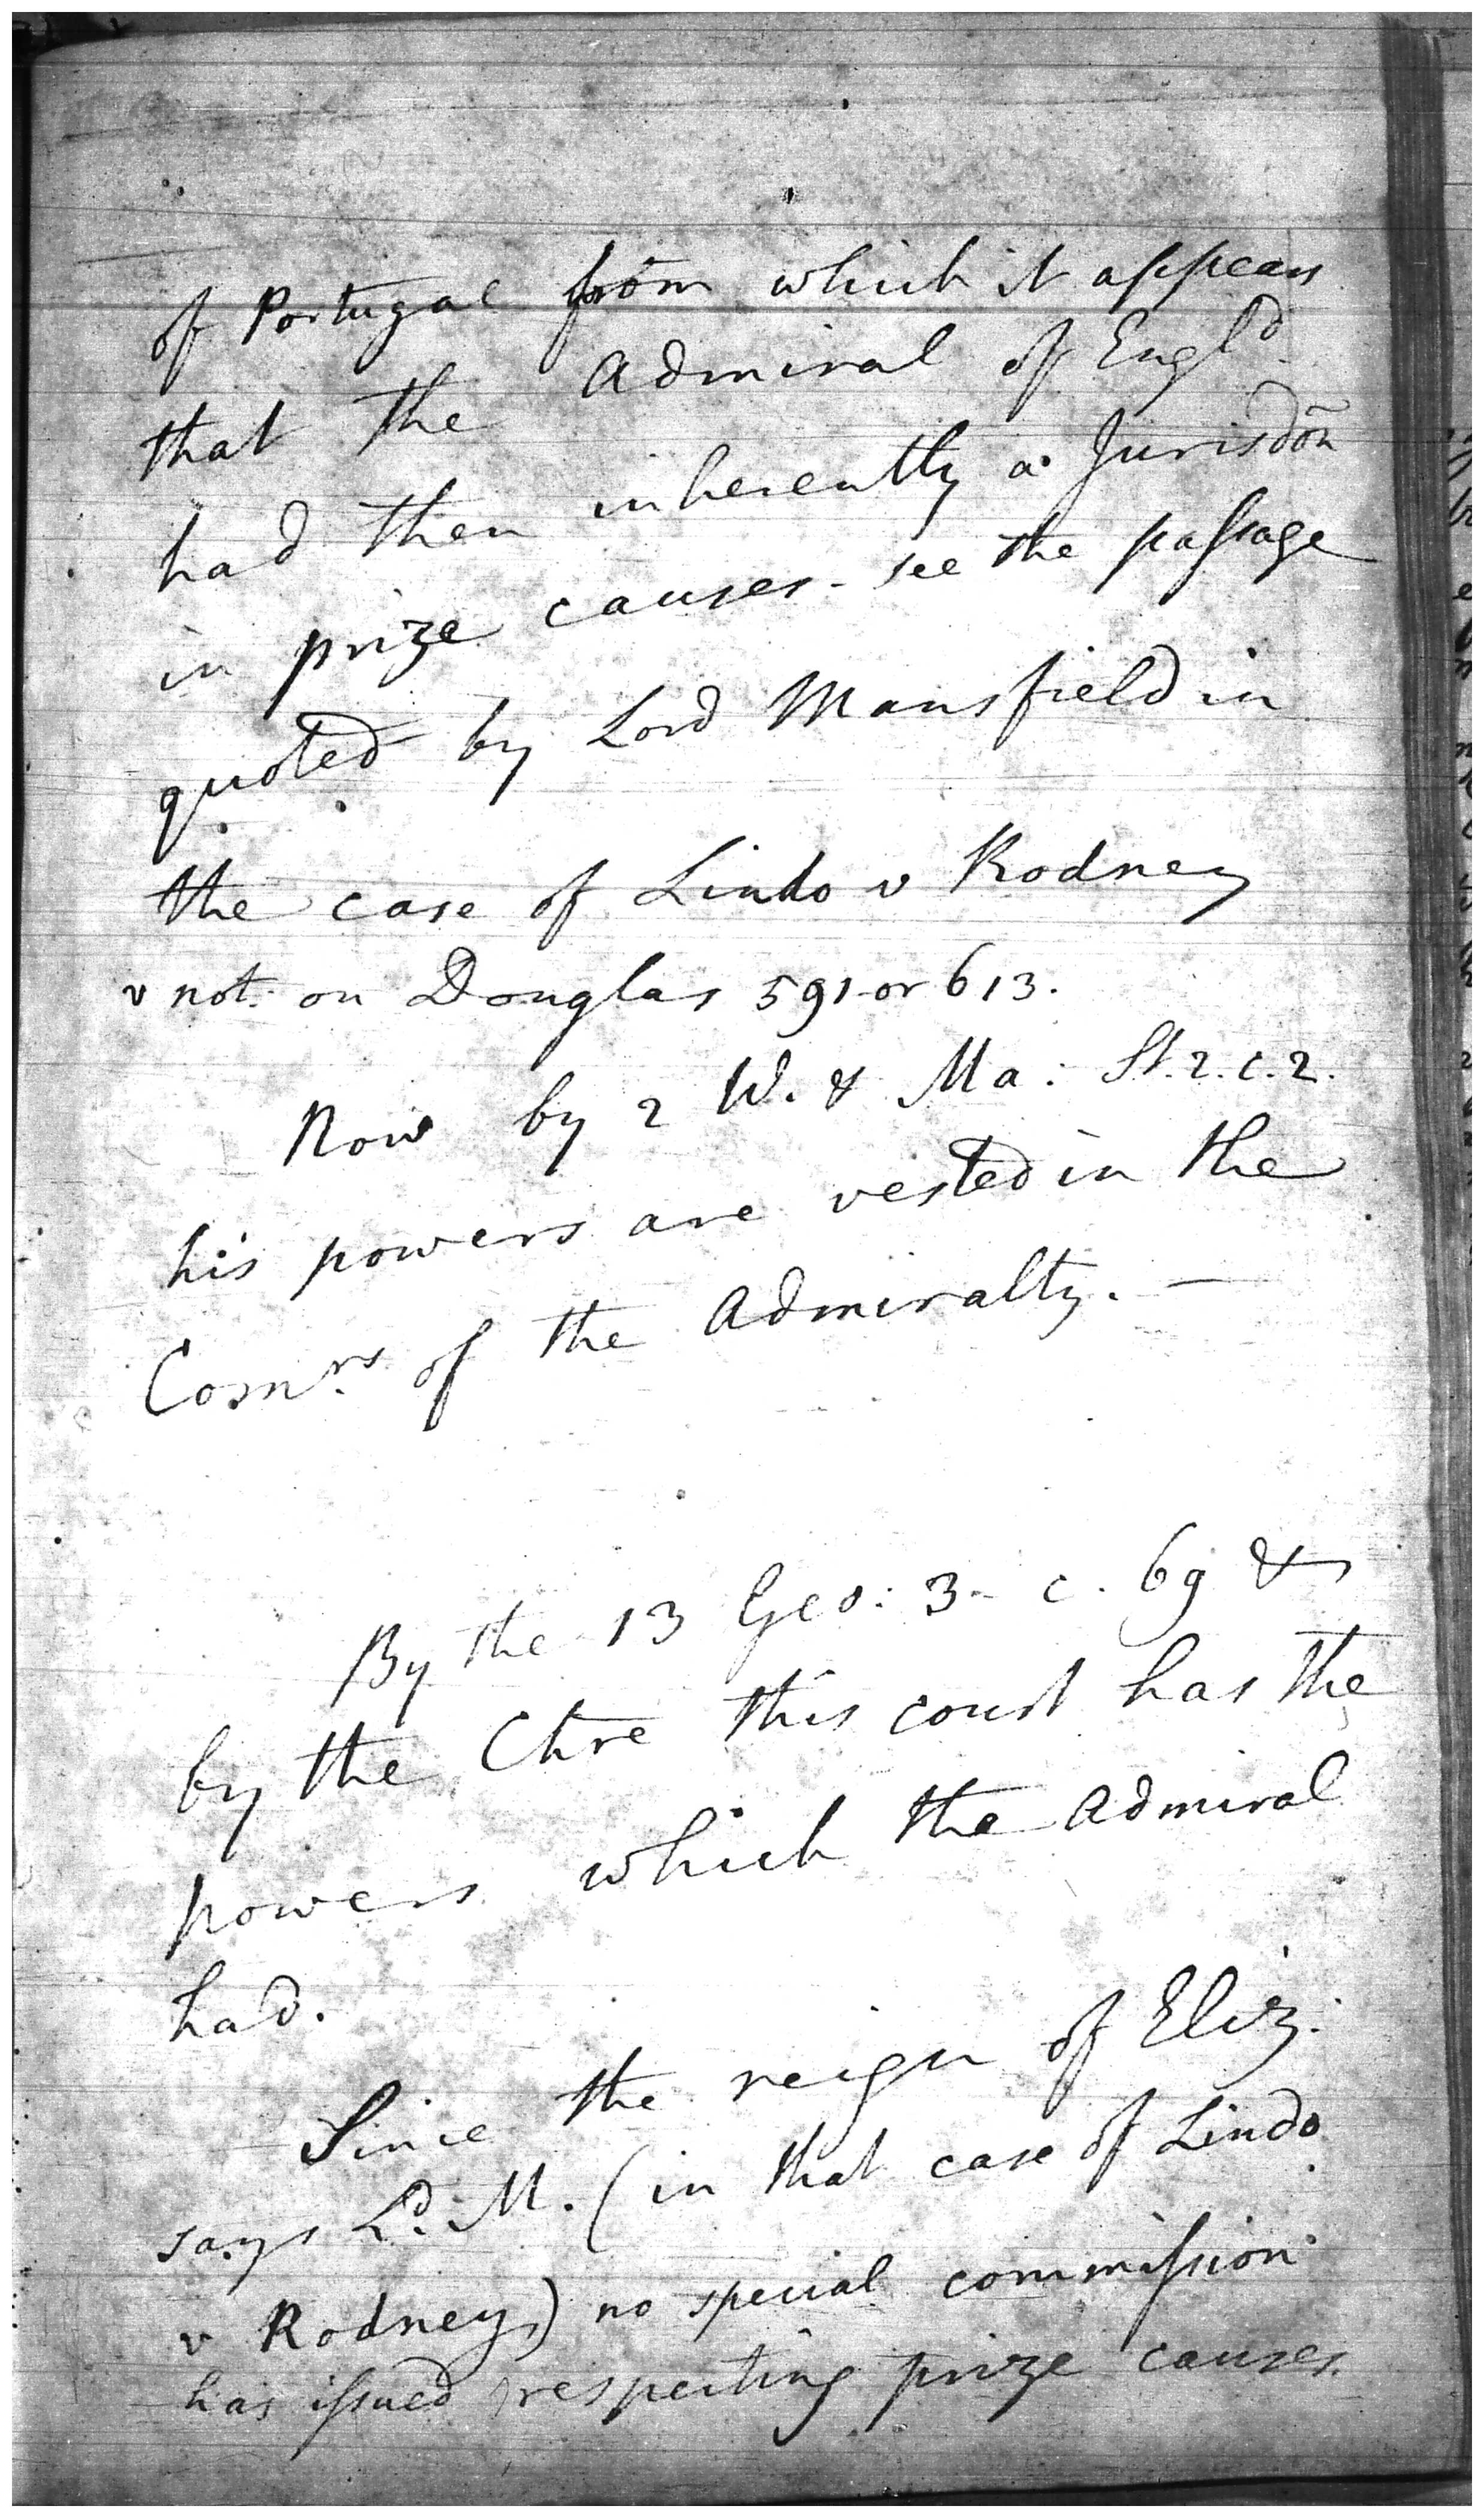 of Portugal from which it appears
that the Admiral of Engl.d
had then inherently a Jurisdõn
in prize causes - see the passage
quoted by Lord Mansfield in
the case of Lindo v Rodney
v not: on Douglas 591 or 613.
Now by 2 W. & Ma: St. 2. c. 2.
his powers are vested in the
Com.rs of the Admiralty. —
By the 13 Geo: 3 - c. 69 &
by the Chre this court has the
powers which the Admiral
had.
Since the reign of Eliz:
says L.d M. (in that case of Lindo
v Rodney) no special commission
has issued respecting prize causes.